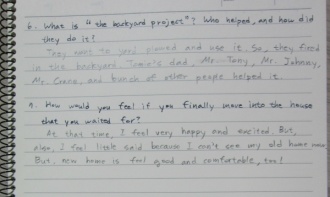 6. What is "the backyard project"? Who helped, and how did
they do it?
They want to yard and use it. So, they fixed
in the backyard. dad, Mr. Tony, Mr. Johnny,
Mr. Crane, and bunch of other people helped it.
9. How would you feel if you finally move into the house
that you waited for?
At that time, I feel very happy and excited. But,
also, I feel little said because I can't see my old home now.
But, new home is feel good and comfortable, too!